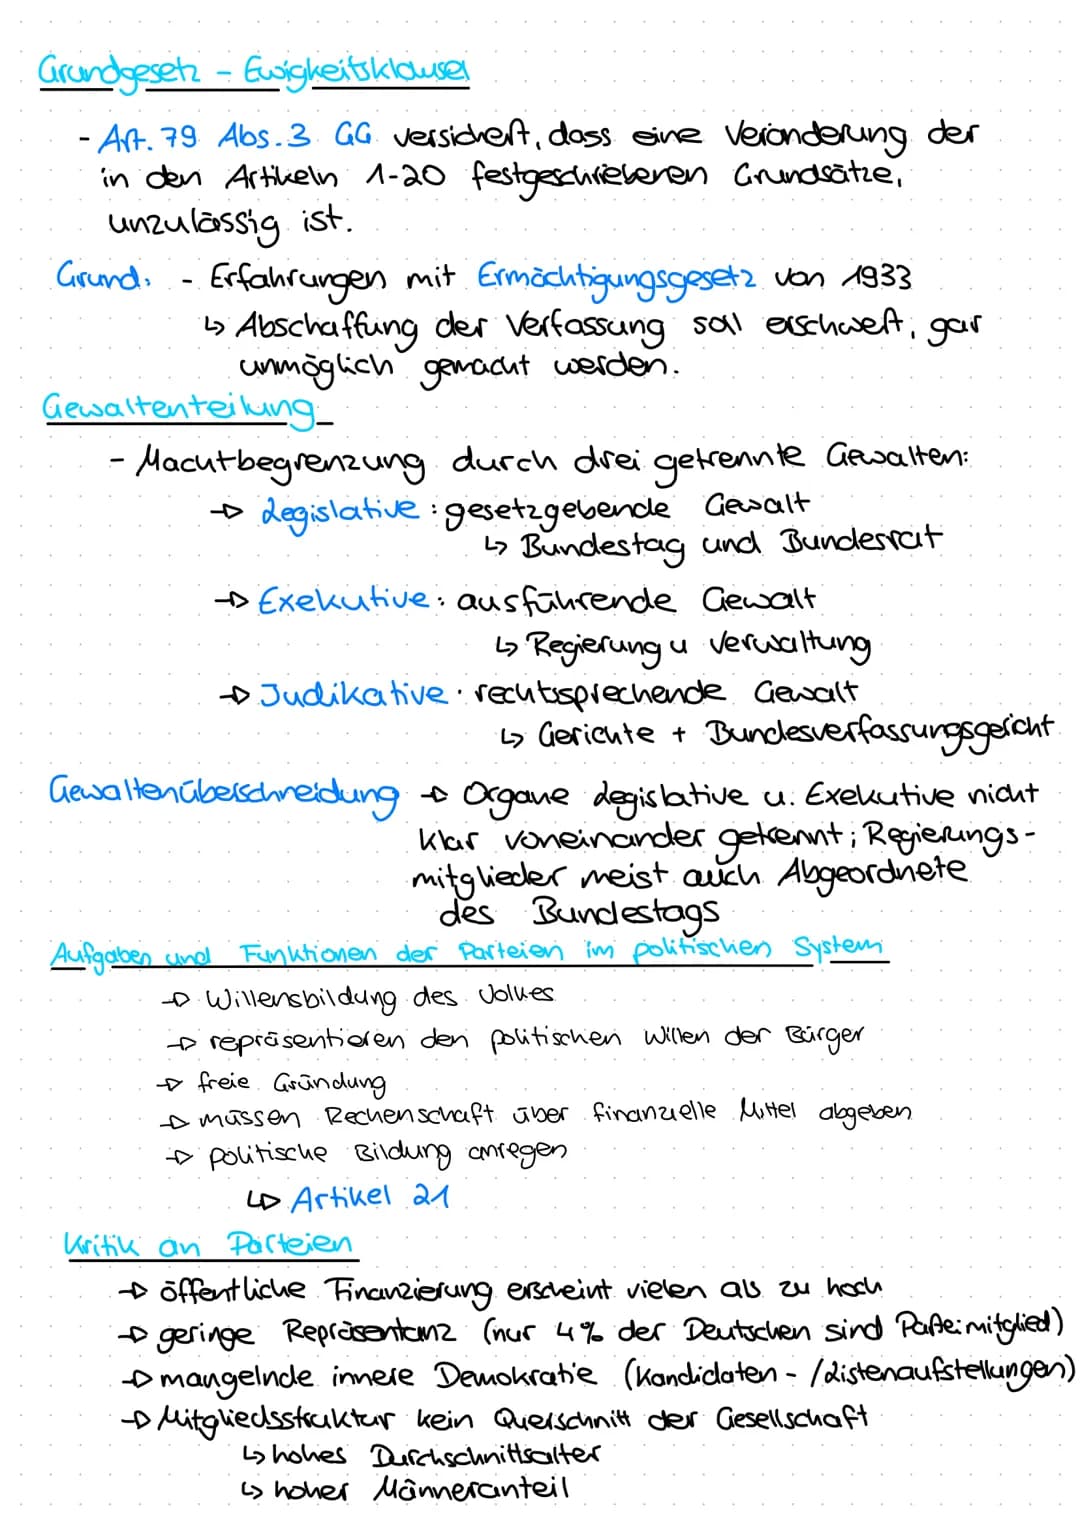 Grundgesetz - Ewigkeitsklausel
- Art. 79 Abs. 3 GG versichert, dass eine Veränderung der
in den Artikeln 1-20 festgeschriebenen Grundsätze,
unzulässig ist.
Grund: - Erfahrungen mit Ermächtigungsgesetz von 1933
↳ Abschaffung der Verfassung soll erschwert, gar
unmöglich gemacht werden.
Gewaltenteilung
- Machtbegrenzung durch drei getrennte Gewalten:
→ Legislative: gesetzgebende Gewalt
↳ Bundestag und Bundesrat
→ Exekutive: ausführende Gewalt
↳ Regierung u Verwaltung
→ Judikative: rechtssprechende Gewalt
↳ Gerichte + Bundesverfassungsgericht
Gewaltenüberschneidung → Organe Legislative u. Exekutive nicht
klar voneinander getrennt; Regierungs-
mitglieder meist auch Abgeordnete
des Bundestags
Aufgaben und Funktionen der Parteien im politischen System
→ Willensbildung des Volkes
→ repräsentieren den politischen Willen der Bürger
→ freie Gründung
→ müssen Rechenschaft über finanzielle Mittel abgeben
→ politische Bildung anregen
↳ Artikel 21
Kritik an Parteien
→ öffentliche Finanzierung erscheint vielen als zu hoch
→ geringe Repräsentanz (nur 4% der Deutschen sind Parteimitglied)
→ mangelnde innere Demokratie (Kandidaten-/Listenaufstellungen)
→ Mitgliedsstruktur kein Querschnitt der Gesellschaft
↳ hohes Durchschnittsalter
↳ hoher Männeranteil